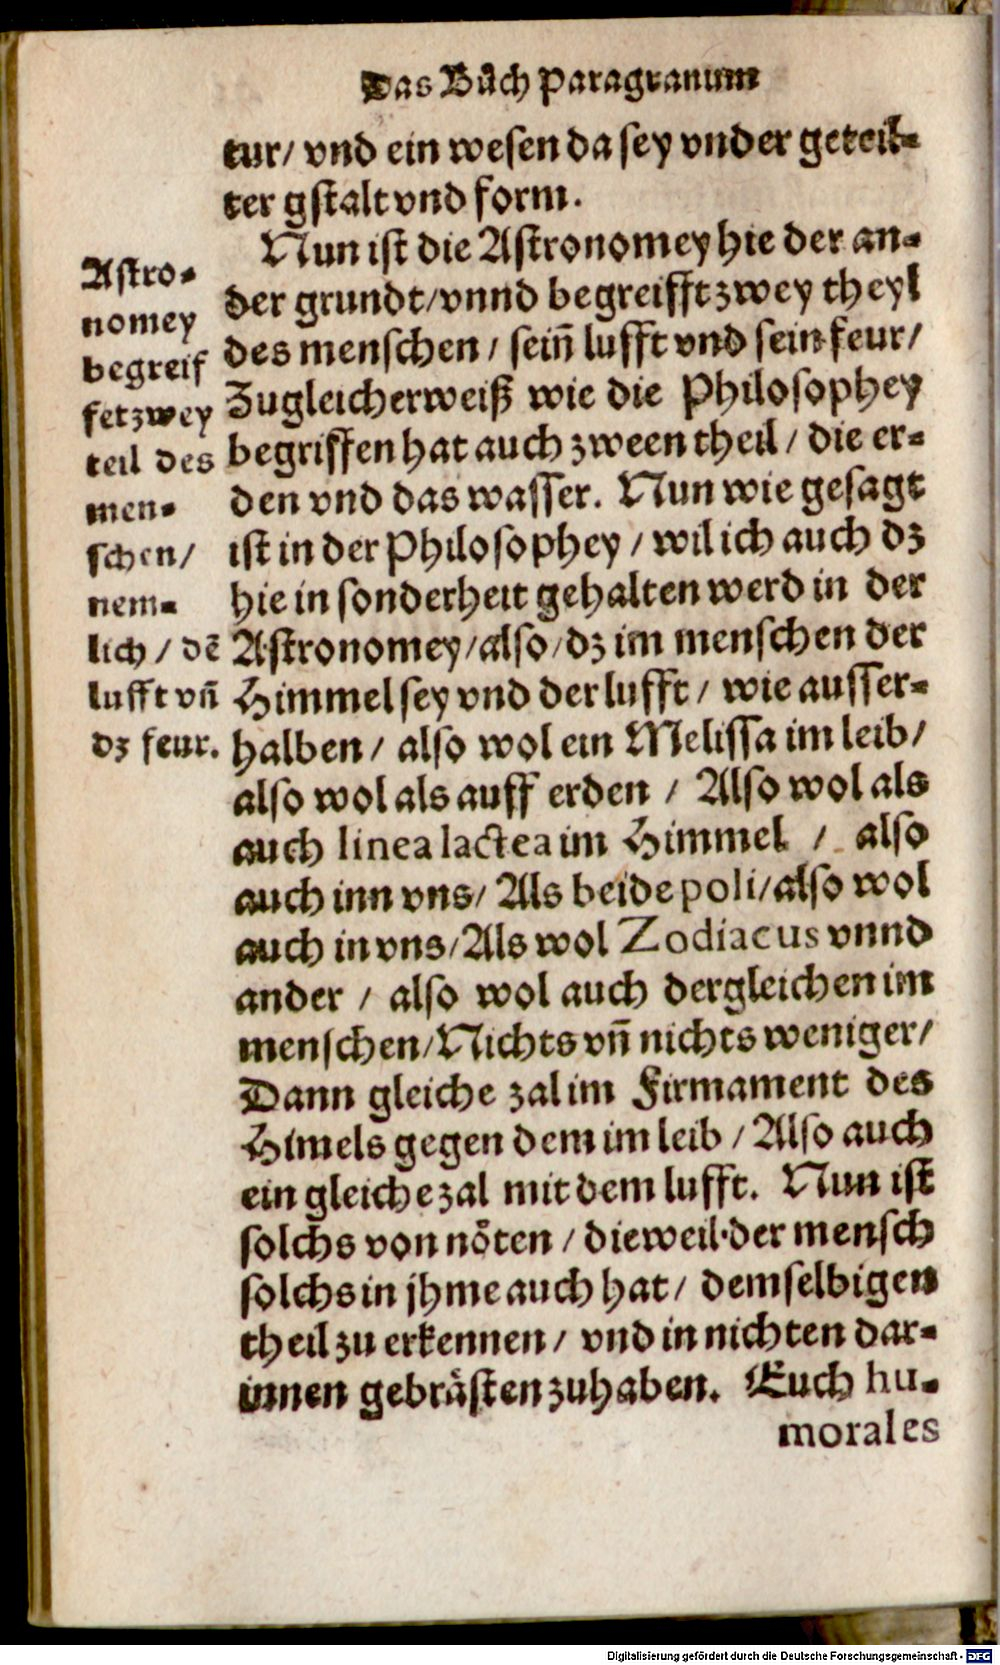 Das Bůch Paragranum
tur/ vnd ein wesen da sey vnder geteil-
ter gstalt vnd form.
Nun ist die Astronomey hie der an-
der grundt/ vnnd begreifft zwey theyl
des menschen / sein̄ lufft vnd sein feur/
Zugleicherweiß wie die Philosophey
begriffen hat auch zween theil / die er-
den vnd das wasser. Nun wie gesagt
ist in der Philosophey / wil ich auch dz
hie in sonderheit gehalten werd in der
Astronomey/also/dz im menschen der
Himmel sey vnd der lufft / wie ausser-
halben / also wol ein Melissa im leib/
also wol als auff erden / Also wol als
auch linea lactea im Himmel / also
auch inn vns/ Als beide poli/also wol
auch in vns/Als wol Zodiacus vnnd
ander / also wol auch dergleichen im
menschen/Nichts vn̄ nichts weniger/
Dann gleiche zal im Firmament des
Himels gegen dem im leib / Also auch
ein gleiche zal mit dem lufft. Nun ist
solchs von nöten / dieweil der mensch
solchs in jhme auch hat / demselbigen
theil zu erkennen / vnd in nichten dar-
innen gebrästen zuhaben. Euch hu-
morales
Astro-
nomey
begreif
fet zwey
teil des
men-
schen/
nem-
lich / dē
lufft vn̄
dz feur.
Digitalisierung gefördert durch die Deutsche Forschungsgemeinschaft - DFG